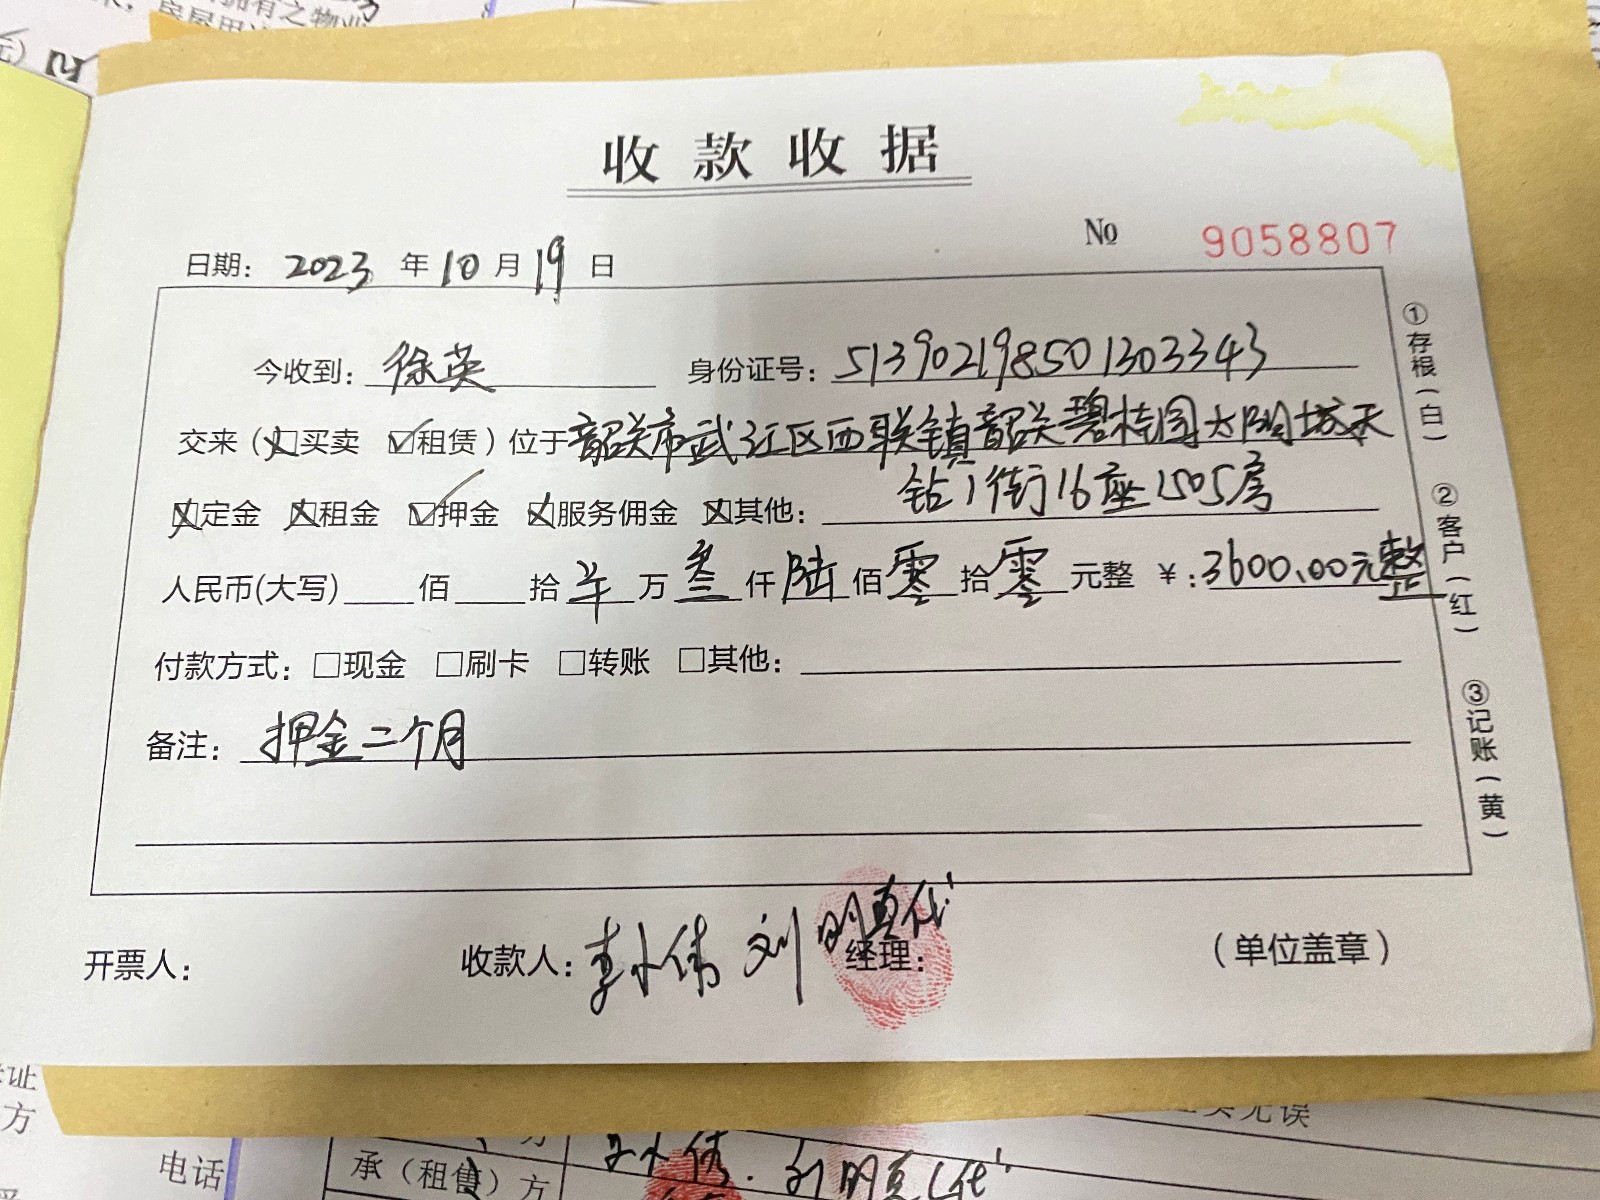 拥有之物业
元）
收款收据
№ 9058807
日期： 2023 年 10 月 19 日
今收到： 徐英 身份证号： 513902198501303343
交来（☒买卖 ☑租赁）位于韶关市武江区西联镇韶关碧桂园太阳城天
钻1街16座1505房
☒定金 ☒租金 ☑押金 ☒服务佣金 ☒其他：
人民币(大写) 佰 拾 羊 万 叁 仟 陆 佰 零 拾 零 元整 ￥：3600.00元整
付款方式：□现金 □刷卡 □转账 □其他：
备注： 押金二个月
开票人： 收款人：李小伟 刘明真代 经理： （单位盖章）
①存根（白）
②客户（红）
③记账（黄）
证
方
电话
承（租售）方
无误